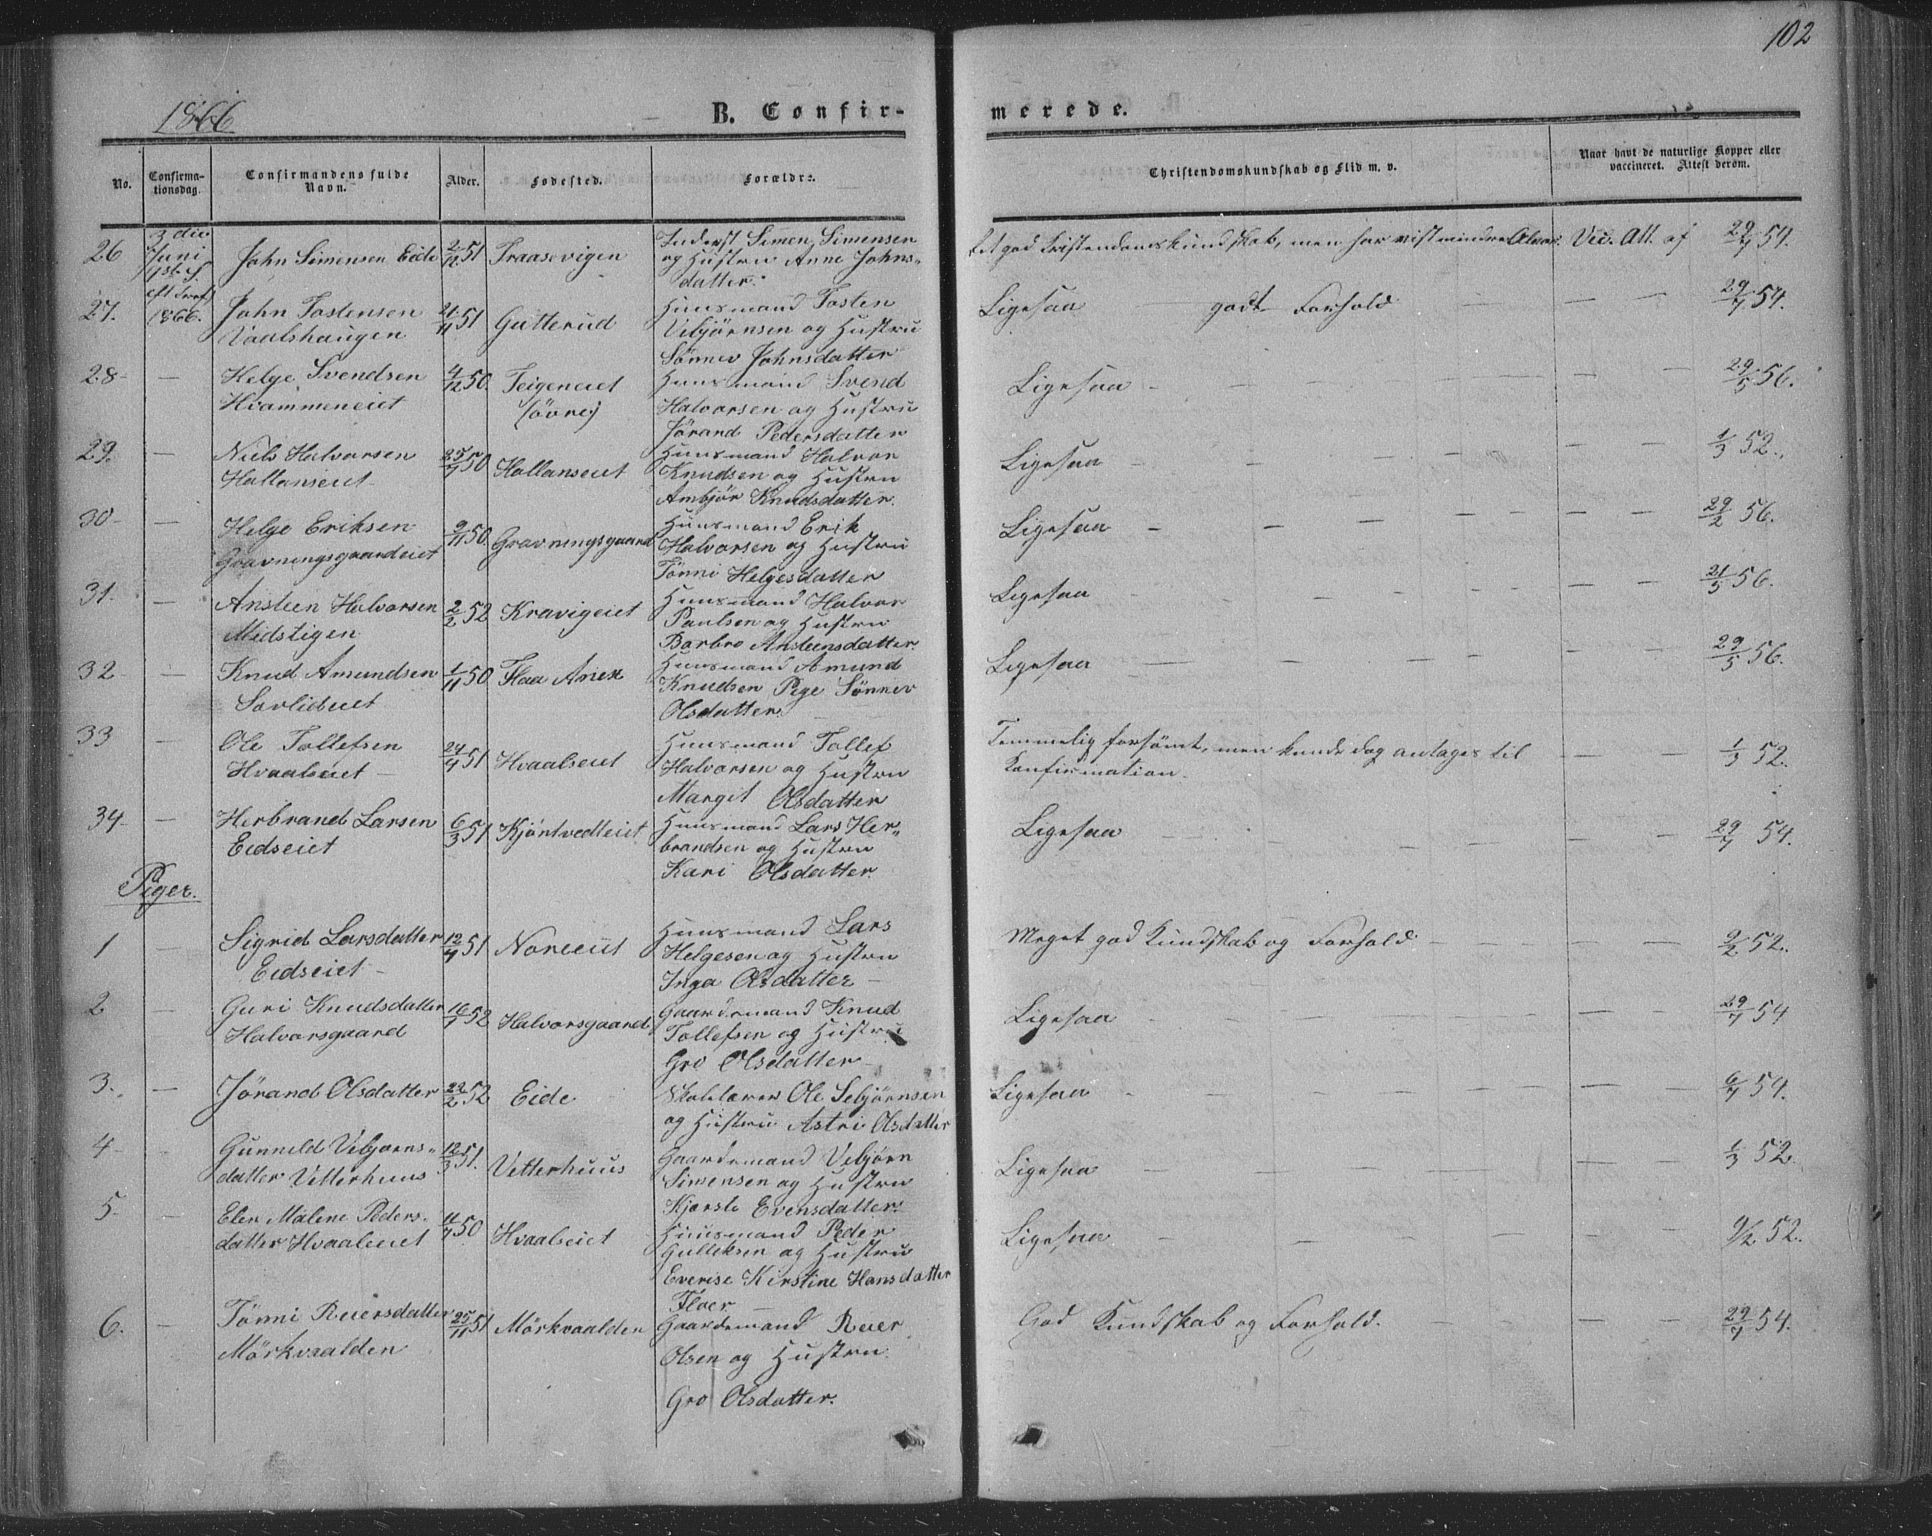 102
1866
B. Confir-
merede.
No.
Confirma-
tionsdag.
Confirmandens fulde
Navn.
Alder.
Fødested.
Forældre.
Christendomskundskab og Flid m. v.
Naar havt de naturlige Kopper eller
vaccineret. Attest derom.
26
3die
Juni
1ste S
eft Tref
1866.
John Simensen Eide
2/12 51
Traasevigen
Inderst Simen Simensen
og Hustru Anne Johns-
datter.
god Kristendomskundskab, men har vist mindre Alvor.
Vac. Att. af
29/7 54.
27.
John Tostensen
Vaalshaugen
21/11 51
Gutterud
Huusmand Tosten
Vebjørnsen og Hustru
Sønnev Johnsdatter
Ligesaa godt Forhold
29/7 54.
28 —
Helge Svendsen
Hvammeneiet
4/12 50
Teigeneiet
(øvre)
Huusmand Svend
Halvorsen og Hustru
Jørand Pedersdatter
Ligesaa
29/5 56.
29. —
Niels Halvorsen
Hallanseiet
25/7 50
Hallanseiet
Huusmand Halvor
Knudsen og Hustru
Ambjør Knudsdatter.
Ligesaa
1/3 52.
30 —
Helge Eriksen
Gravningsgaardeiet
9/11 50
Gravningsgaard
Huusmand Erik
Halvorsen og Hustru
Tønni Helgesdatter
Ligesaa
29/2 56.
31. —
Ansteen Halvorsen
Midstigen
2/2 52
Kravigeiet
Huusmand Halvor
Paulsen og Hustru
Barbro Ansteensdatter
Ligesaa
21/5 56.
32 —
Knud Amundsen
Sorlideiet
1/11 50
Flaa Anex
Huusmand Amund
Knudsen Pige Sønnev
Olsdatter.
Ligesaa
29/5 56.
33 —
Ole Tollefsen
Hvaalseiet
24/4 51
Hvaalseiet
Huusmand Tollef
Halvorsen og Hustru
Margit Olsdatter
Temmelig forsømt, men kunde dog antages til
Konfirmation.
1/3 52.
34 —
Herbrand Larsen
Eidseiet
6/3 51
Kjøntvedteiet
Huusmand Lars Her-
brandsen og Hustru
Kari Olsdatter
Ligesaa
29/7 54.
Piger.
1 —
Sigrid Larsdatter
Eidseiet
12/4 51
Noreeiet
Huusmand Lars
Helgesen og Hustru
Inga Olsdatter
Meget god Kundskab og Forhold
2/2 52.
2 —
Guri Knudsdatter
Halvorsgaard
16/7 52
Halvorsgaard
Gaardemand Knud
Tollefsen og Hustru
Gro Olsdatter
Ligesaa
29/7 54
3. —
Jørand Olsdatter
22/2 52
Eide
Skolelærer Ole Sebjørnsen
og Hustru Astri Olsdatter
Ligesaa
6/7 54.
4 —
Gunnild Vebjørns-
datter Vetterhuus
12/3 51.
Vetterhuus
Gaardemand Vebjørn
Simensen og Hustru
Kjersti Evensdatter.
Ligesaa
1/3 52.
5. —
Elen Malene Peders-
datter Hvaalseiet
11/7 50
Hvaalseiet
Huusmand Peder
Gulleksen og Hustru
Everise Kirstine Hansdatter
Floer.
Ligesaa
9/2 52.
6. —
Tønni Reiersdatter
Mörkvaalden
25/11 51
Mörkvaalden
Gaardemand Reier
Olsen og Hustru
Gro Olsdatter.
God Kundskab og Forhold.
29/7 54.